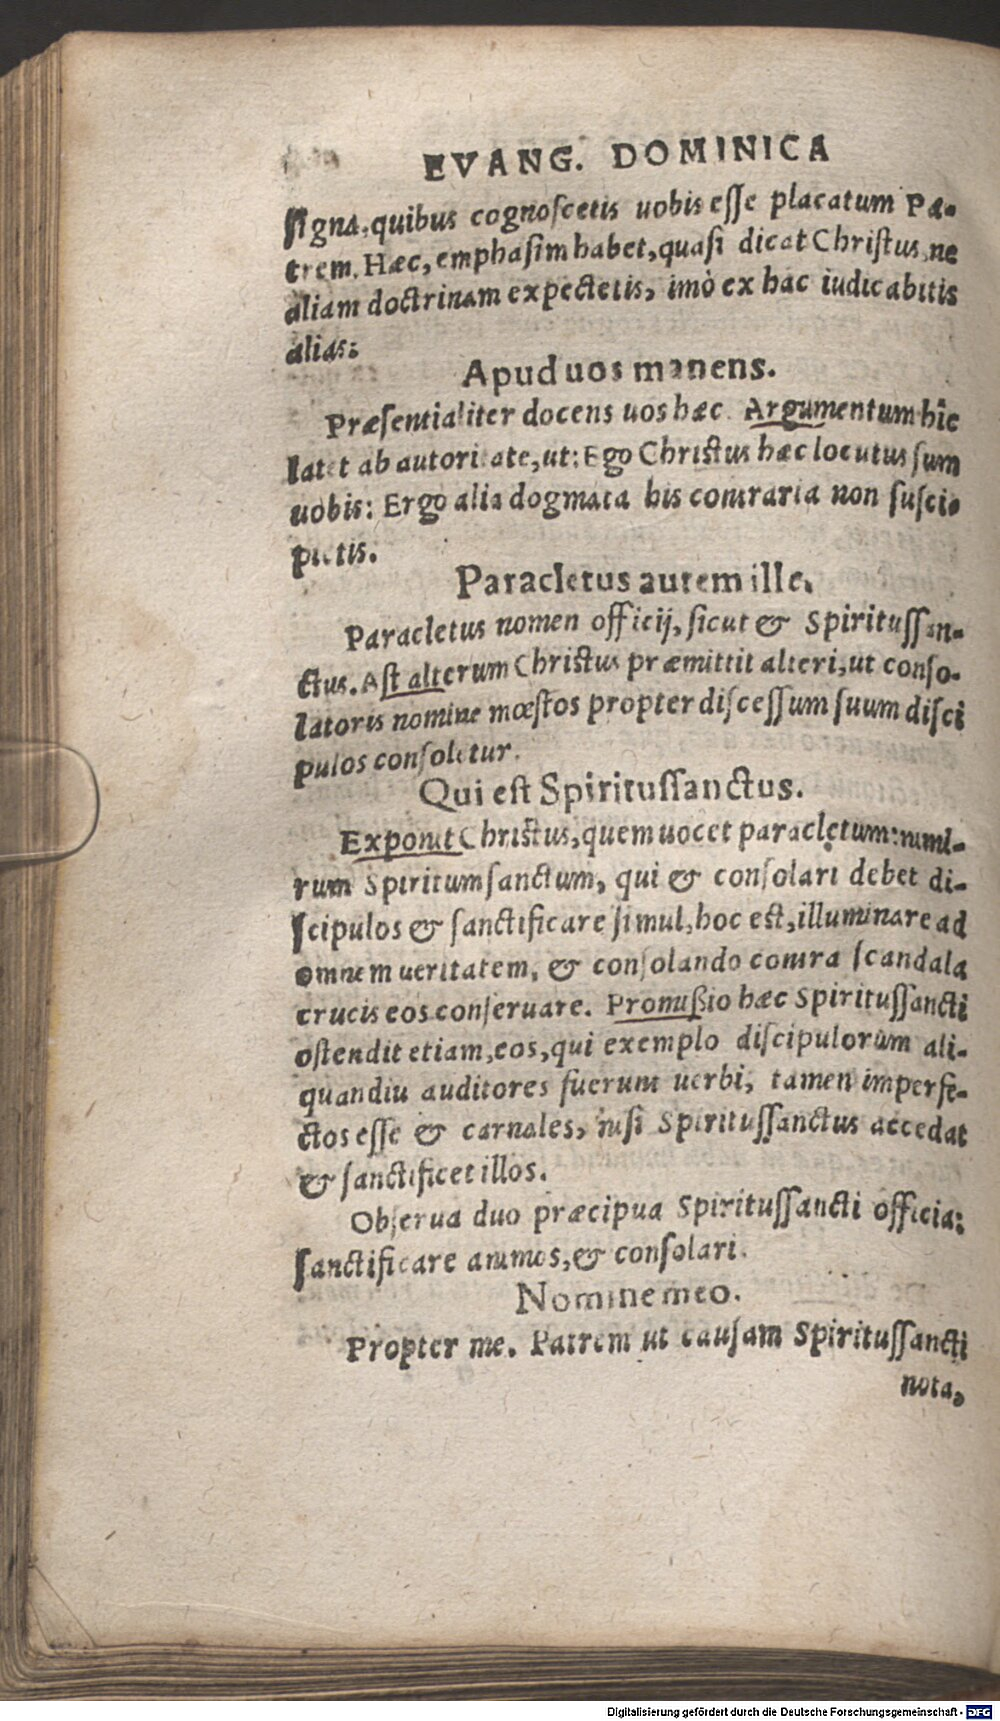 EVANG. DOMINICA
ſigna, quibus cognoſcetis uobis eſſe placatum Pa-
trem. Hæc, emphaſim habet, quaſi dicat Chriſtus, ne
aliam doctrinam expectetis, imò ex hac iudicabitis
alias:
Apud uos manens.
Præſentialiter docens uos hæc. Argumentum hîc
latet ab autoritate, ut: Ego Chriſtus hæc locutus ſum
uobis: Ergo alia dogmata his contraria non ſuſci-
pietis.
Paracletus autem ille.
Paracletus nomen officij, ſicut & Spirituſſan-
ctus. Aſt alterum Chriſtus præmittit alteri, ut conſo-
latoris nomine mœſtos propter diſceſſum ſuum diſci
pulos conſoletur.
Qui eſt Spirituſſanctus.
Exponit Chriſtus, quem uocet paracletum: nimi-
rum Spiritumſanctum, qui & conſolari debet di-
ſcipulos & ſanctificare ſimul, hoc eſt, illuminare ad
omnem ueritatem, & conſolando contra ſcandala
crucis eos conſeruare. Promißio hæc Spirituſſancti
oſtendit etiam, eos, qui exemplo diſcipulorum ali-
quandiu auditores fuerunt uerbi, tamen imperfe-
ctos eſſe & carnales, niſi Spirituſſanctus accedat
& ſanctificet illos.
Obſerua duo præcipua Spirituſſancti officia:
ſanctificare animos, & conſolari.
Nomine meo.
Propter me. Patrem ut cauſam Spirituſſancti
nota,
Digitalisierung gefördert durch die Deutsche Forschungsgemeinschaft - DFG